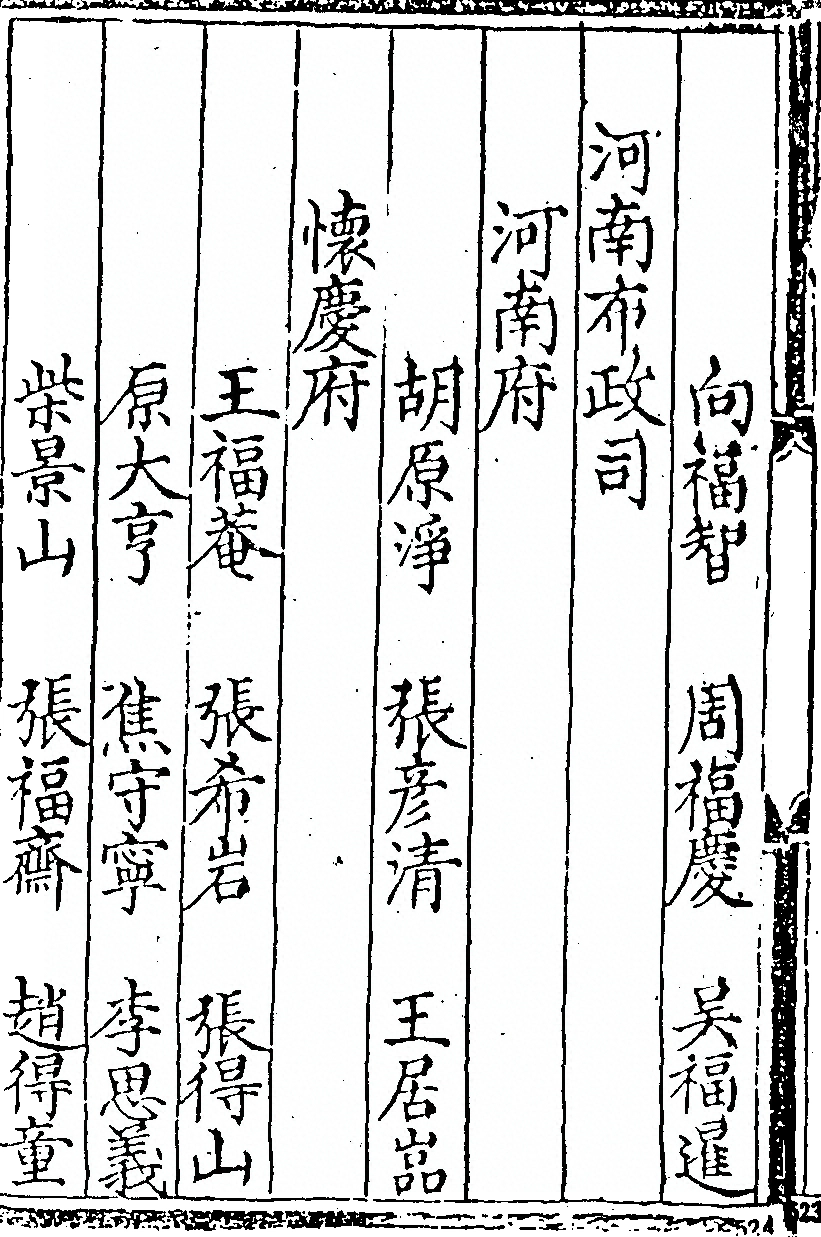 向福智 周福慶 吴福暹
河南布政司
河南府
胡原淨 張彦清 王居嵓
懷慶府
王福菴 張希岩 張得山
原大亨 焦守寧 李思義
柴景山 張福齋 趙得童
524
523